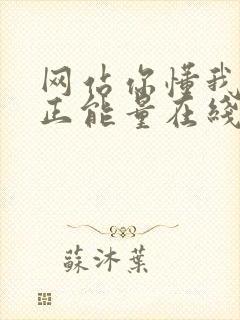 网站你懂我
正能量在线
蘇沐葉